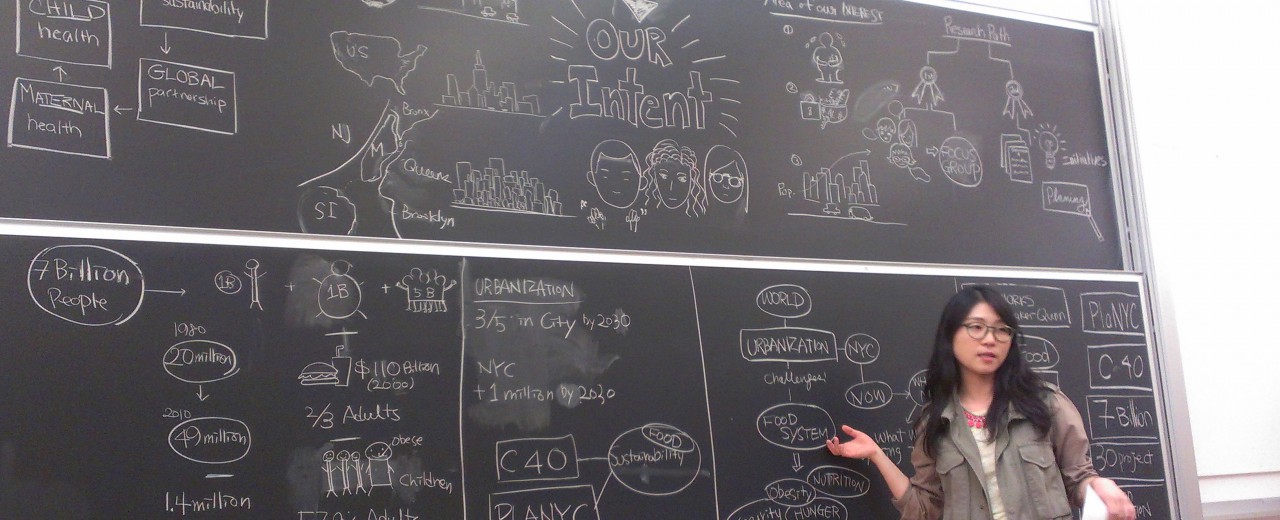 CHILD
health
sustainability
GLOBAL
partnership
MATERNAL
health
US
NJ
M
Bronx
Queens
Brooklyn
SI
OUR
Intent
Area of our INTEREST
Pop.
Research Path
FOCUS
GROUP
Initiatives
Planning
7 Billion
People
1B
+
1B
+
5B
1980
20 million
2010
49 million
1.4 million
$110 Billion
(2000)
2/3 Adults
obese
Children
Adults
URBANIZATION
3/5 in City by 2030
NYC
+1 million by 2030
C40
PLANYC
FOOD
Sustainability
WORLD
URBANIZATION
NYC
challenges
NOW
FOOD
SYSTEM
what
NUTRITION
Obesity
HUNGER
Food
PlaNYC
C40
7 Billion
30 project